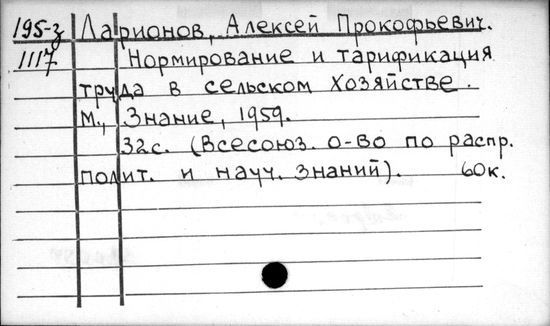 195-з Ларионов, Алексей Прокофьевич.
1117 Нормирование и тарификация
труда в сельском хозяйстве.
М., Знание, 1959.
32с. (Всесоюз. о-во по распр.
полит. и науч. знаний). 60к.